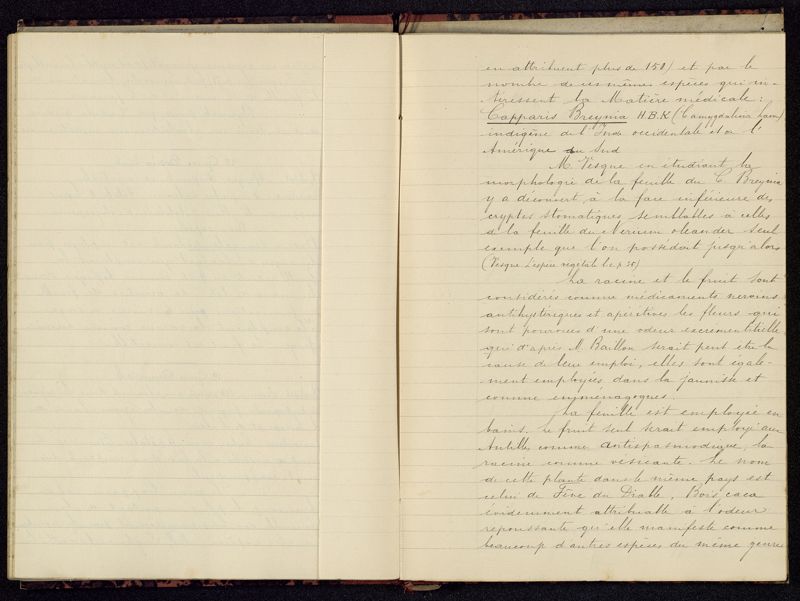 en attribuent plus de 150) et par le
nombre de ces mêmes espèces qui in-
téressent la Matière médicale:
Capparis Breynia H.B.K (C amygdalina Lam)
indigène de l'Inde occidentale et de l'
Amérique du Sud
M. Vesque en étudiant la
morphologie de la feuille du C. Breynia
y a découvert, à la face inférieure des
cryptes stomatiques semblables à celles
de la feuille du Nerium oleander seul
exemple que l'on possédait jusqu'alors
(Vesque L'espèce végétale l.c. p 35)
La racine et le fruit sont
considérés comme médicaments nervins
antihystériques et apéritives les fleurs qui
sont pourvues d'une odeur excrémentitielle
qui d'après M. Baillon serait peut être la
cause de leur emploi, elles sont égale-
ment employées dans la jaunisse et
comme emménagogues.
La feuille est employée en
bains. Le fruit seul serait employé aux
Antilles comme antispasmodique, la
racine comme vésicante. Le nom
de cette plante dans le même pays est
celui de Fève du Diable, Bois caca
évidemment attribuable à l'odeur
repoussante qu'elle manifeste comme
beaucoup d'autres espèces du même genre